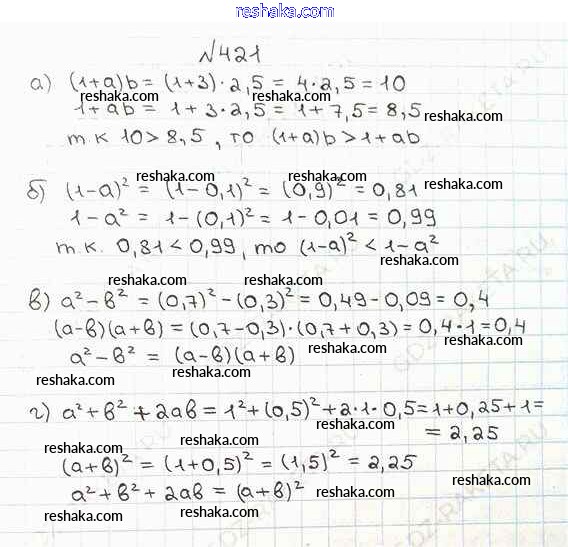 www.reshaka.com
№421
а) (1+a)b = (1+3)·2,5 = 4·2,5 = 10
reshaka.com reshaka.com
1+ab = 1+3·2,5 = 1+7,5 = 8,5
reshaka.com
т к 10 > 8,5, то (1+a)b > 1+ab
reshaka.com reshaka.com
б) (1-a)² = (1-0,1)² = (0,9)² = 0,81
reshaka.com
1-a² = 1-(0,1)² = 1-0,01 = 0,99
т.к. 0,81 < 0,99, то (1-a)² < 1-a²
reshaka.com reshaka.com
reshaka.com reshaka.com
в) a²-в² = (0,7)²-(0,3)² = 0,49-0,09 = 0,4
(a-в)(a+в) = (0,7-0,3)·(0,7+0,3) = 0,4·1 = 0,4
a²-в² = (a-в)(a+в)
reshaka.com reshaka.com
reshaka.com
reshaka.com reshaka.com
г) a²+в²+2aв = 1²+(0,5)²+2·1·0,5 = 1+0,25+1 =
= 2,25
reshaka.com reshaka.com reshaka.com
(a+в)² = (1+0,5)² = (1,5)² = 2,25
reshaka.com
a²+в²+2aв = (a+в)²
reshaka.com
reshaka.com reshaka.com
GDZ-RAKETA.RU
GDZ-RAKETA.RU